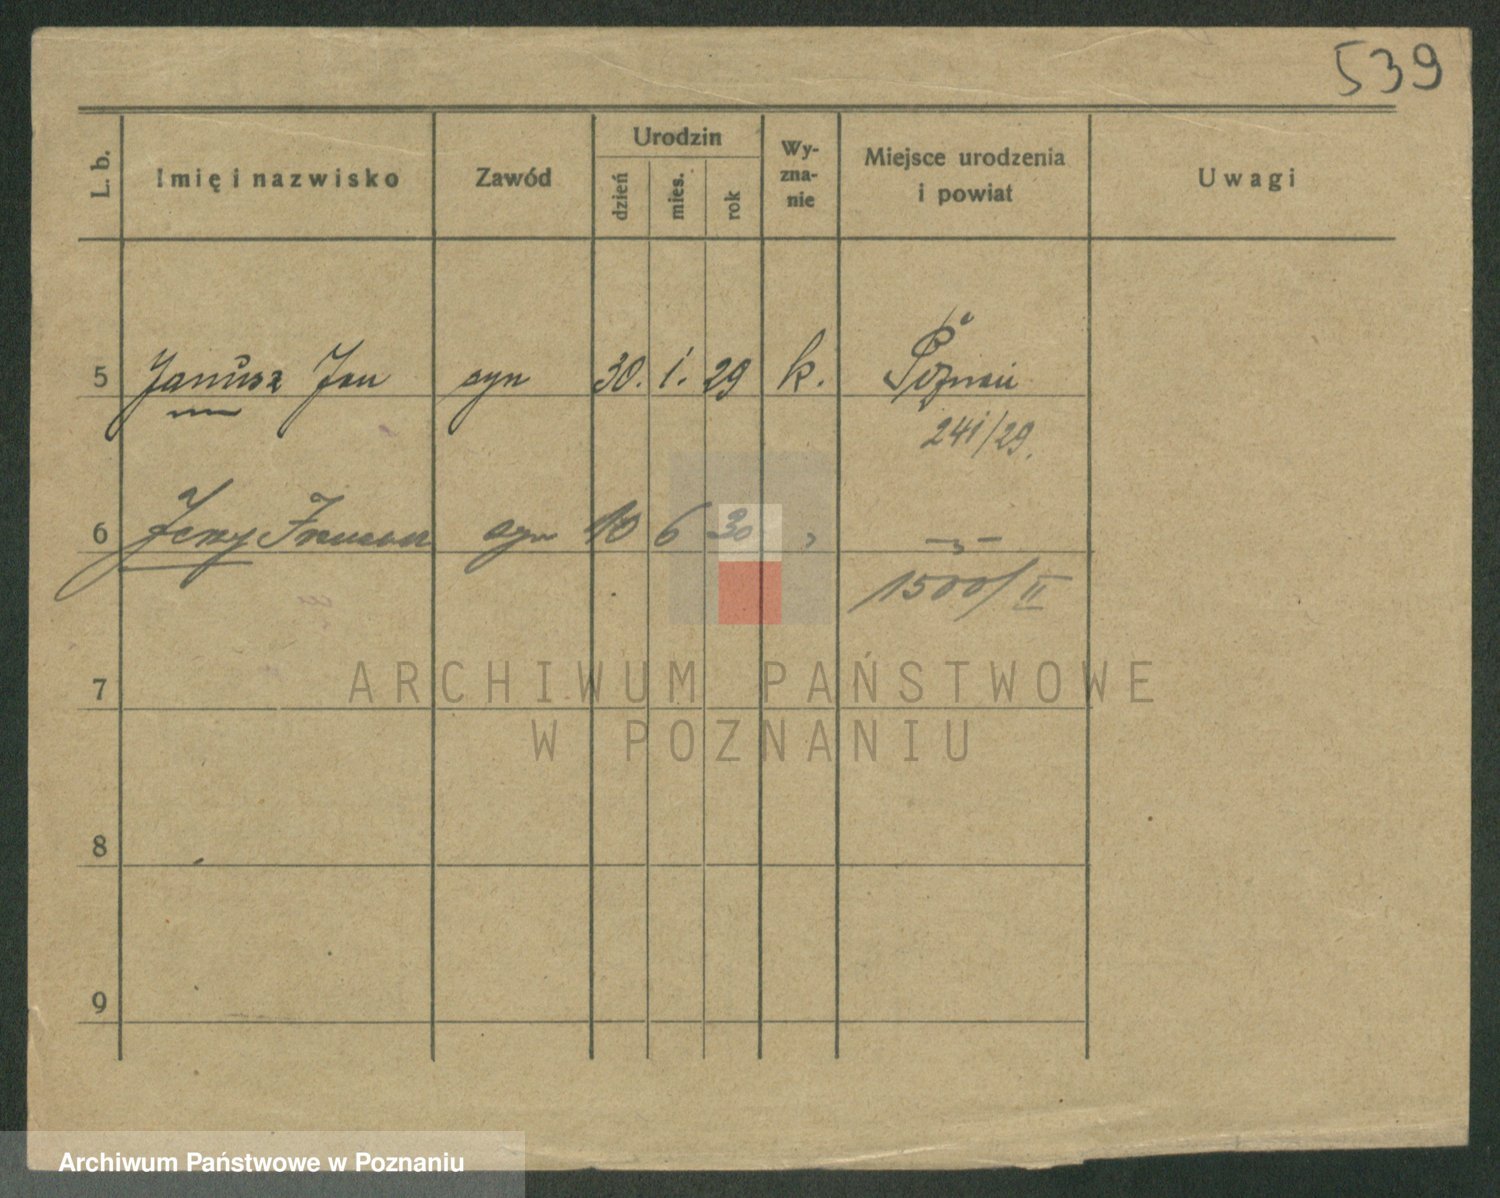 539
L. b.
Imię i nazwisko
Zawód
Urodzin
dzień
mies.
rok
Wy-
zna-
nie
Miejsce urodzenia
i powiat
Uwagi
5 Janusz Jan syn 30. 1. 29 k. Poznań
241/29.
6 Jerzy syn 10 6 30 " — " —
1500/II
7
8
9
ARCHIWUM PAŃSTWOWE
W POZNANIU
Archiwum Państwowe w Poznaniu